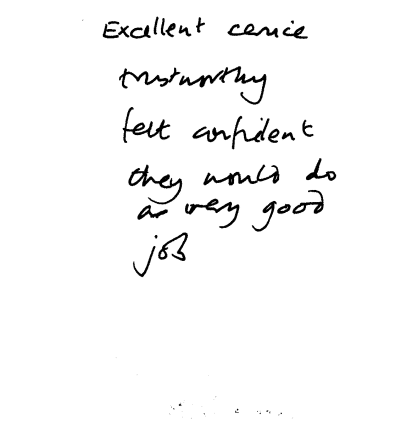 Excellent cervice
trustworthy
felt confident
they would do
a very good
job